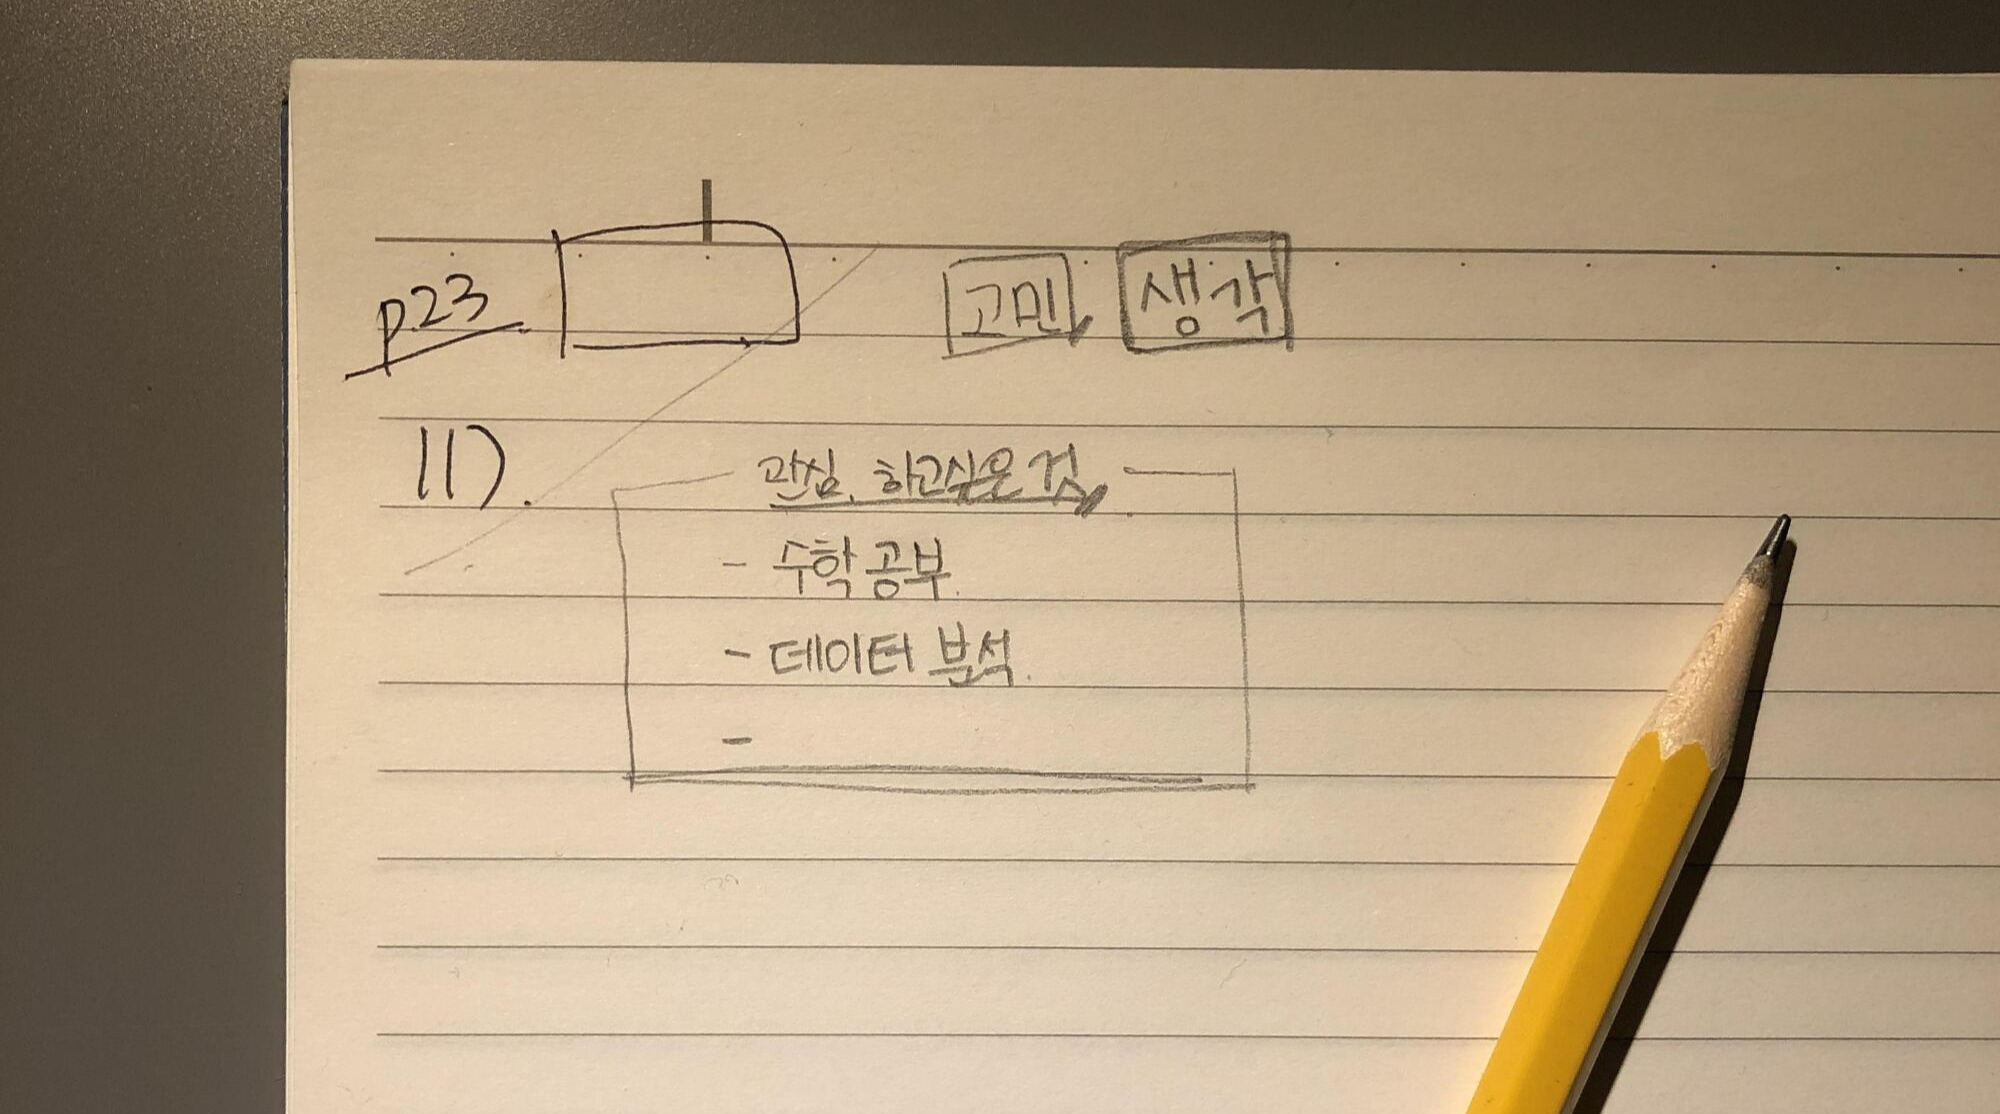 p.23 고민 생각
11).
관심, 하고싶은 것
- 수학 공부.
- 데이터 분석.
-